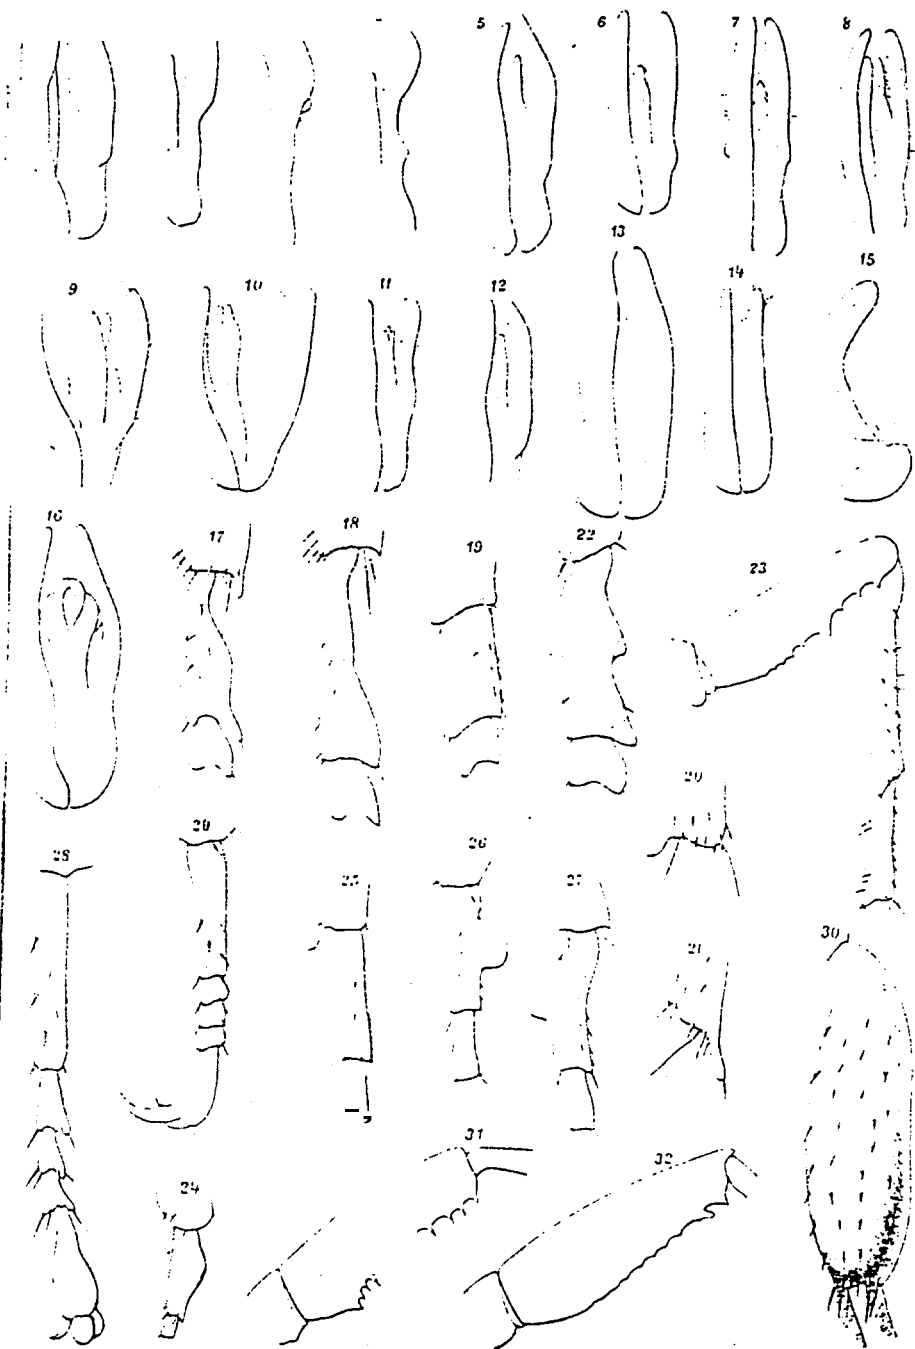 5 6 7 8
13
9 10 11 12 14 15
16 17 18 19 22 23
20
28 29 25 26 27 21 30
31
24 32